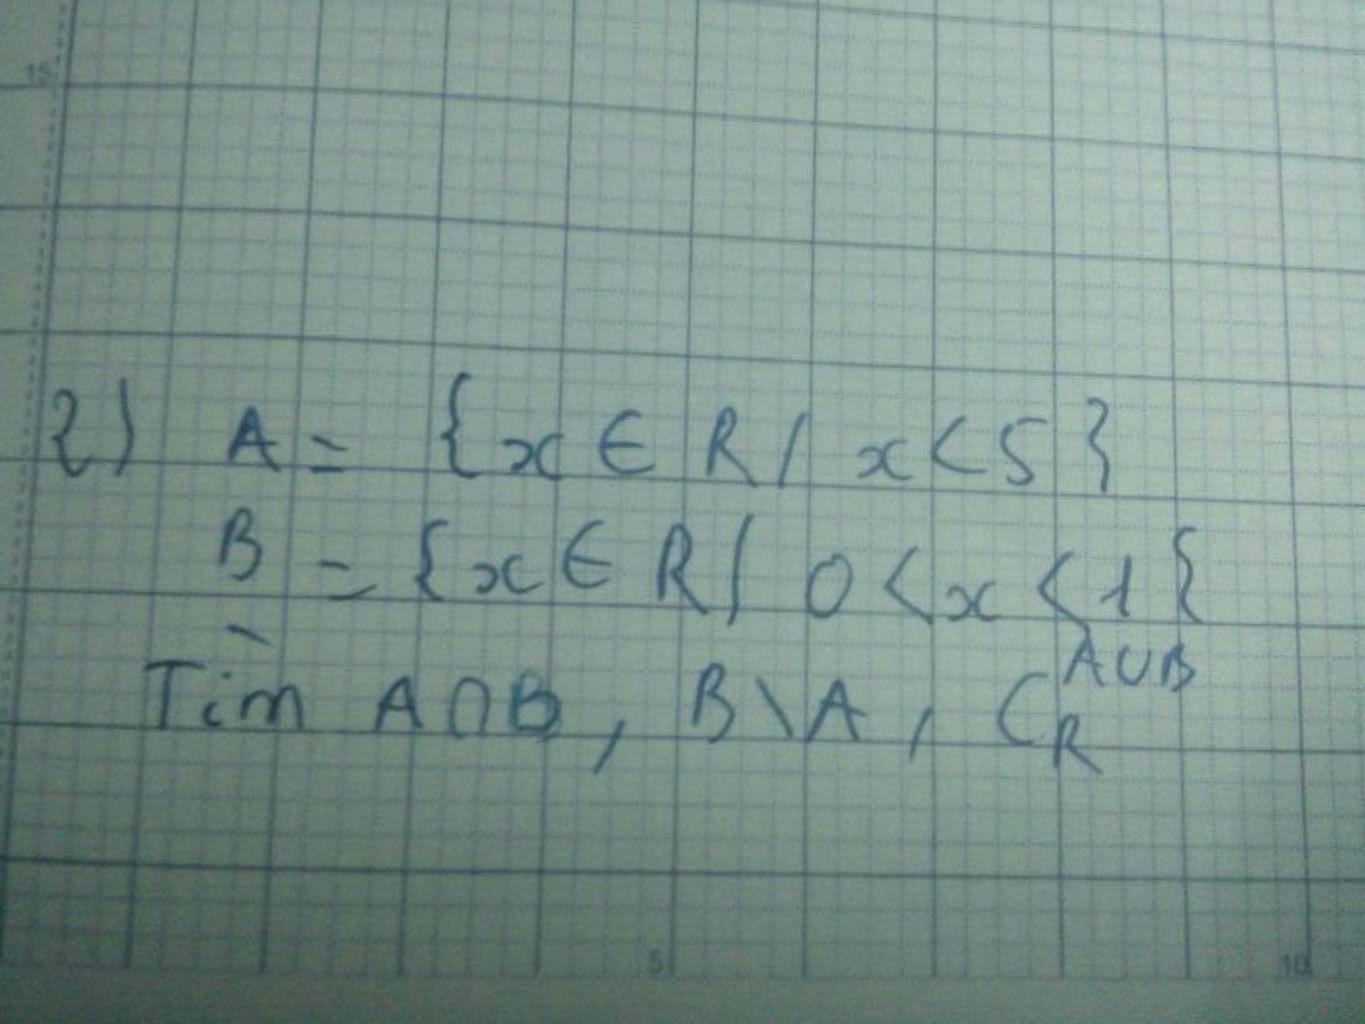 15
2) A = {x ∈ R / x < 5}
B = {x ∈ R / 0 < x < 1{
Tìm A∩B, B\A, C_R^{A∪B}
5 10